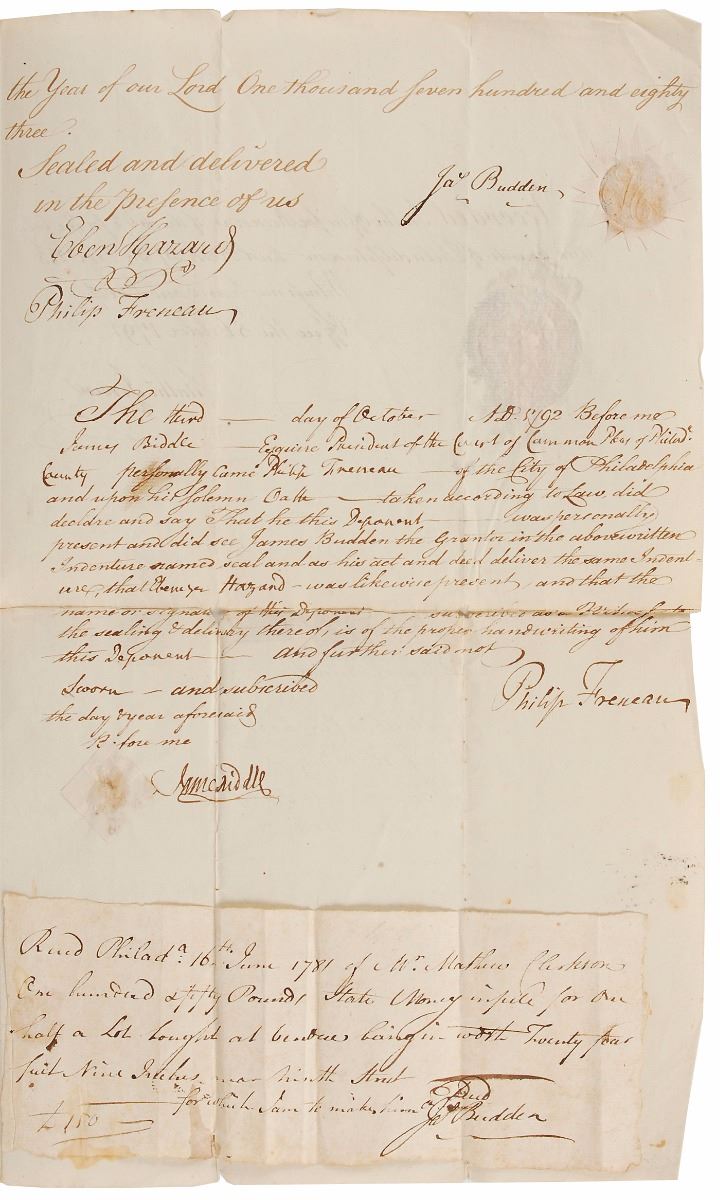 the Year of our Lord One thousand Seven hundred and eighty
three.
Sealed and delivered
in the presence of us
Jas Budden
Eben Hazard
Philip Freneau
The third day of October AD. 1792 Before me
James Biddle Esquire President of the Court of Common Pleas of Philada.
County personally came Philip Freneau of the City of Philadelphia
and upon his solemn Oath taken according to Law, did
declare and say That he this Deponent was personally
present and did see James Budden the Grantor in the abovewritten
Indenture named seal and as his act and deed deliver the same Indent-
ure, that Ebenezer Hazard was likewise present, and that the
name or signat of this Deponent as a Witness to
the sealing & delivery thereof, is of the proper handwriting of him
this Deponent and further said not
Sworn and subscribed
Philip Freneau
the day & year aforesaid
Before me
James Biddle
Recd Philada. 16th June 1781 of Mr. Mathew Clarkson
One hundred & fifty Pounds State Money in for One
half a Lot bought at vendue being in Twenty four
feet Nine Inches near Ninth Street
for which I am to make him a Deed
£150
Jas Budden